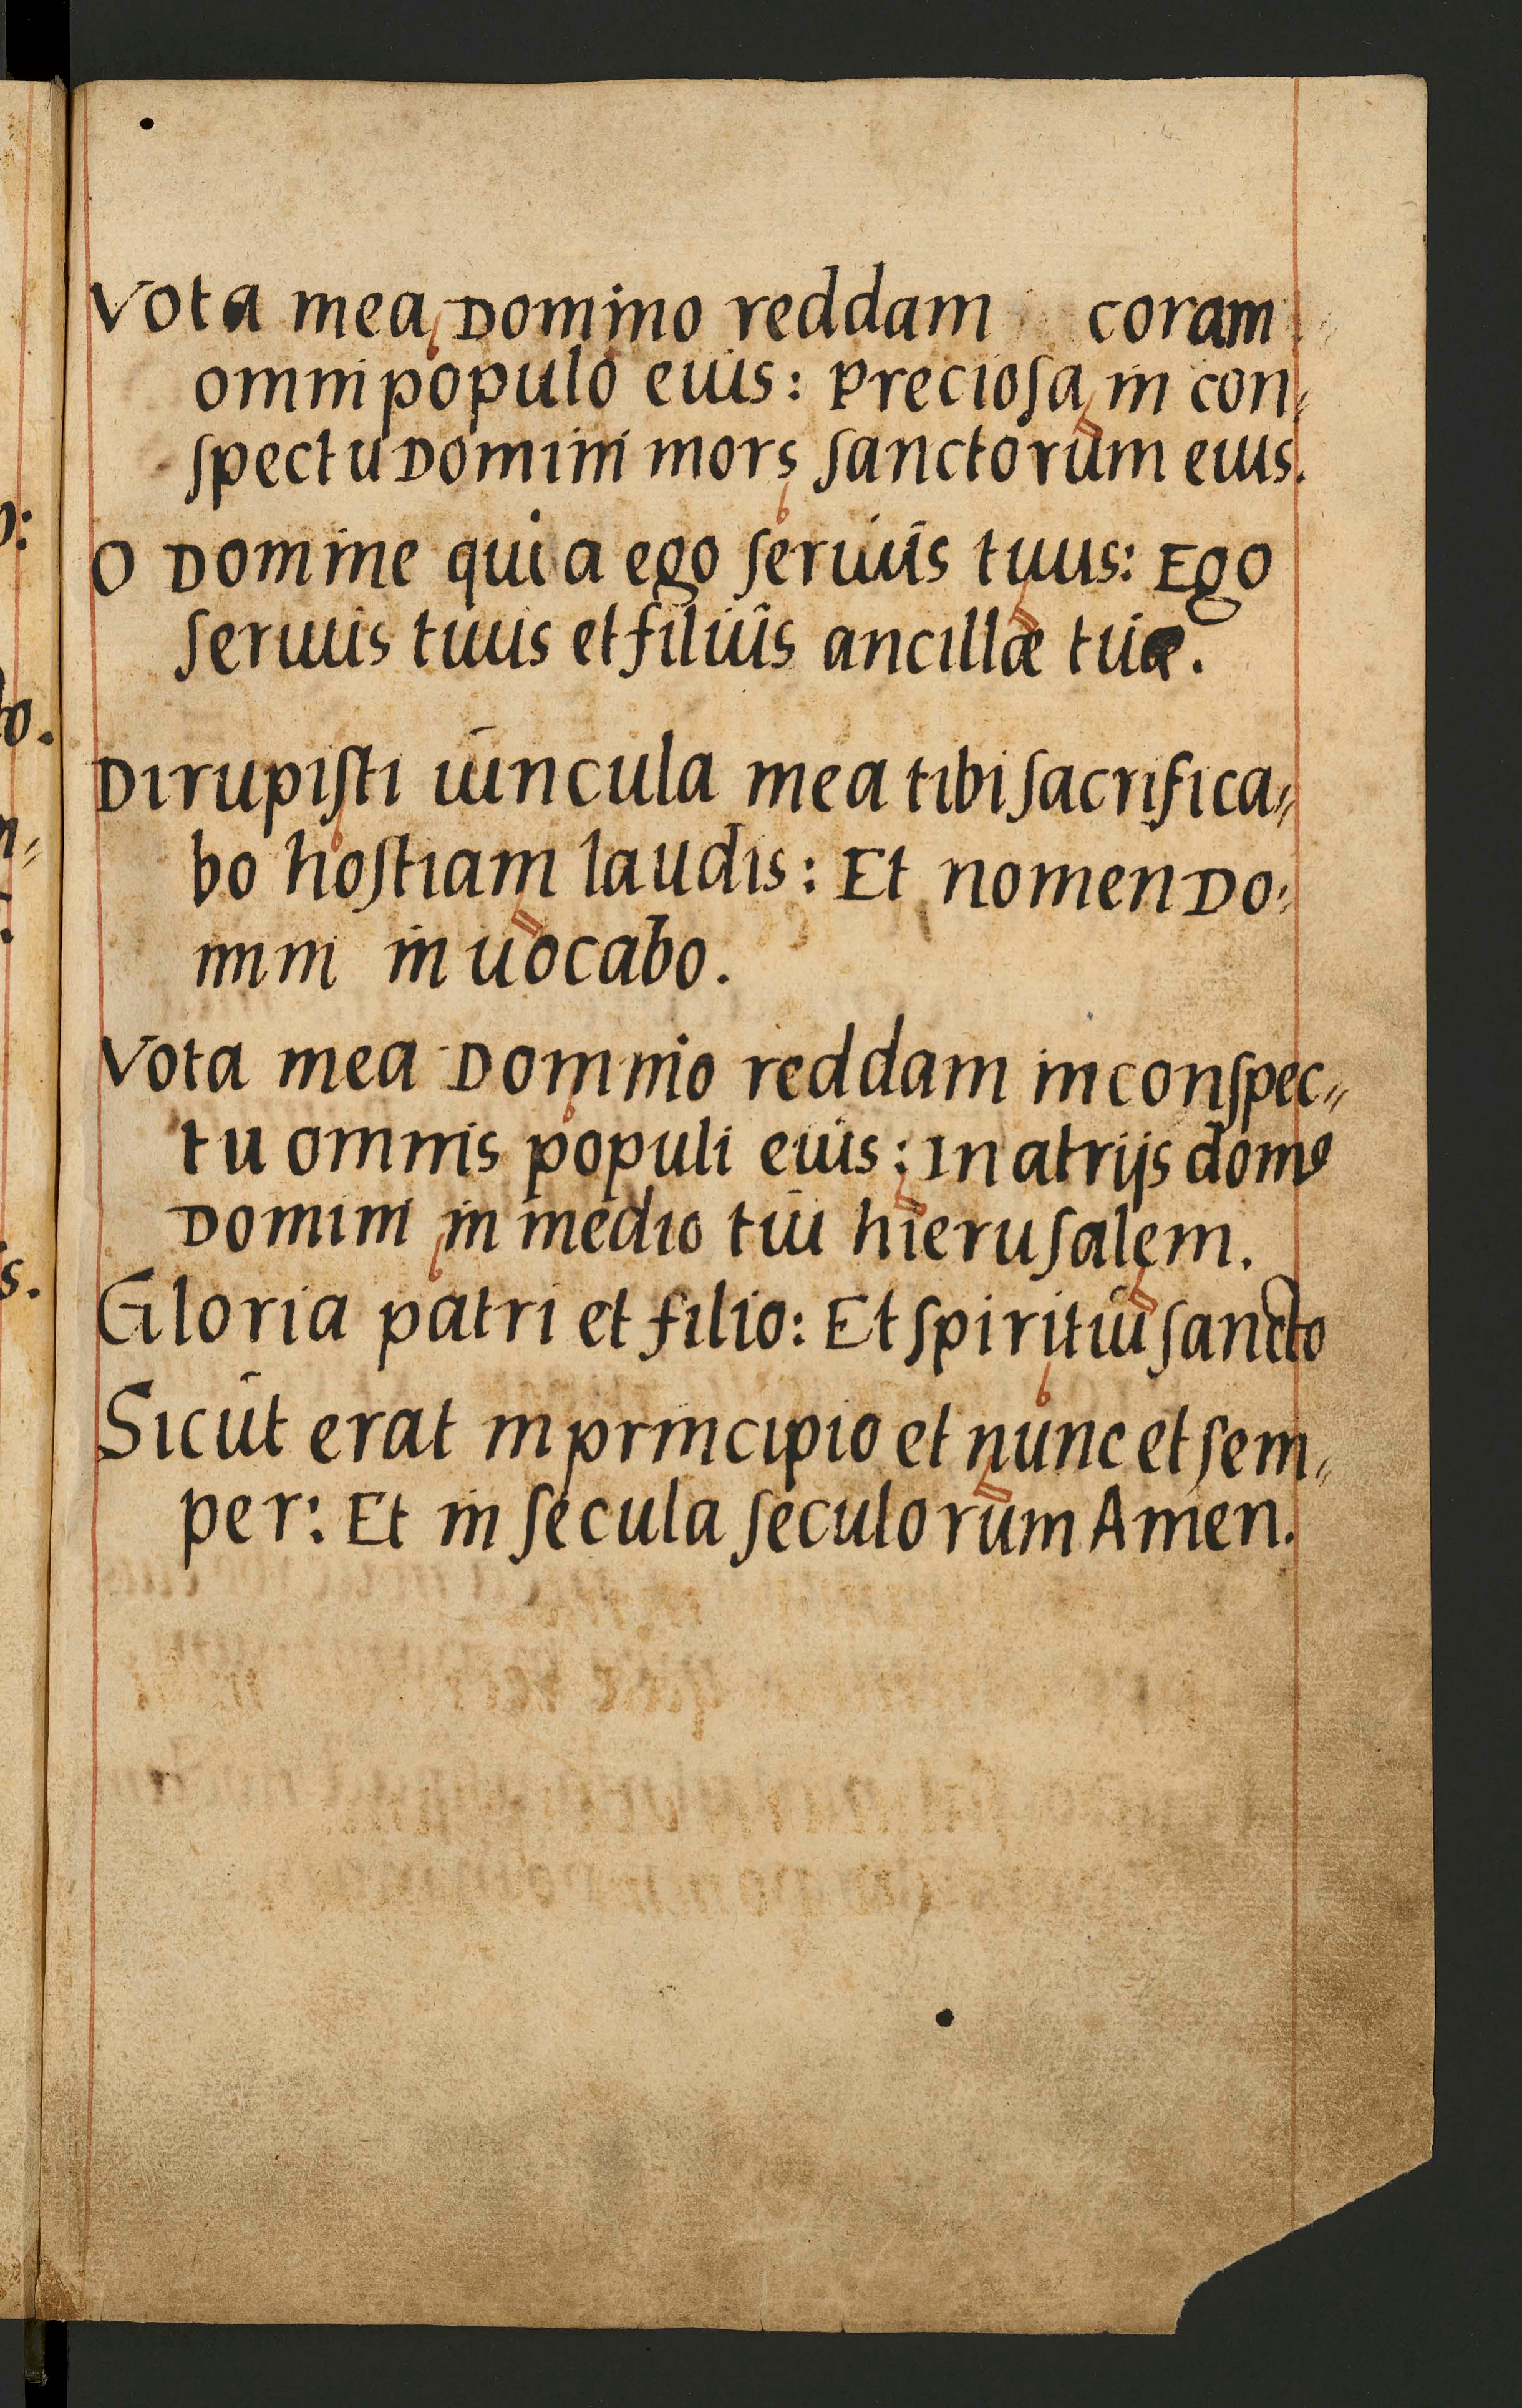 Vota mea Domino reddam coram
omni populo eius: preciosa in con=
spectu Domini mors sanctorum eius.
O Domine quia ego seruus tuus: Ego
seruus tuus et filius ancillæ tuæ.
Dirupisti uincula mea tibi sacrifica=
bo hostiam laudis: Et nomen Do=
mini inuocabo.
Vota mea Domino reddam in conspec=
tu omnis populi eius: In atrijs domo
Domini in medio tui hierusalem.
Gloria patri et filio: Et spiritui sancto
Sicut erat in principio et nunc et sem=
per: Et in secula seculorum Amen.